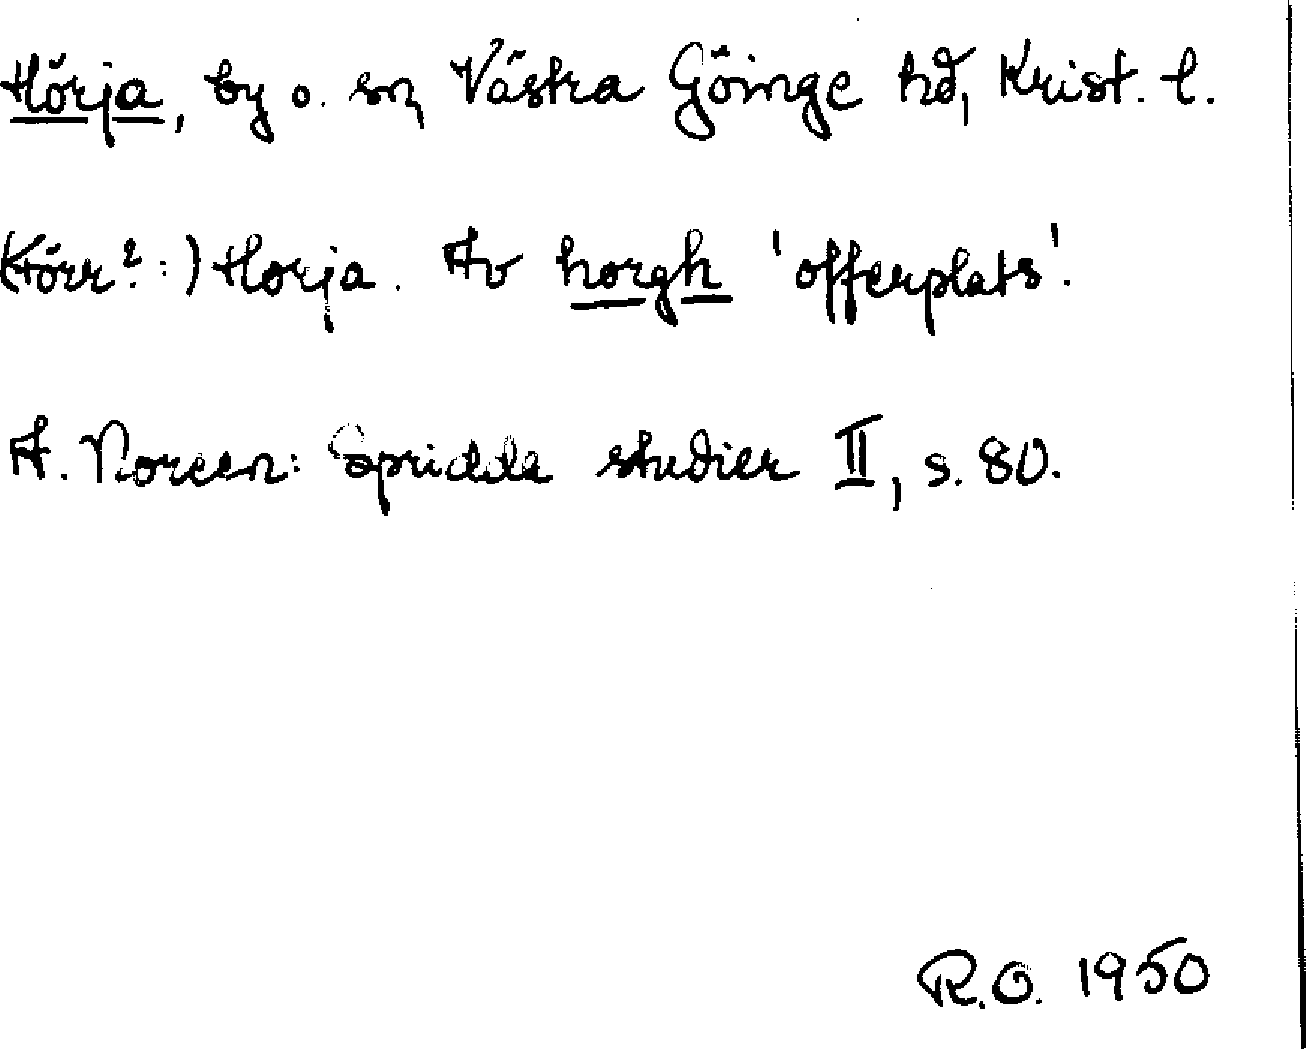 Hörja, by o. sn, Västra Göinge hd, Krist. l.
(förr?:) Horja. Av horgh 'offerplats'.
A. Noreen: Spridda studier II, s. 80.
R.O. 1950